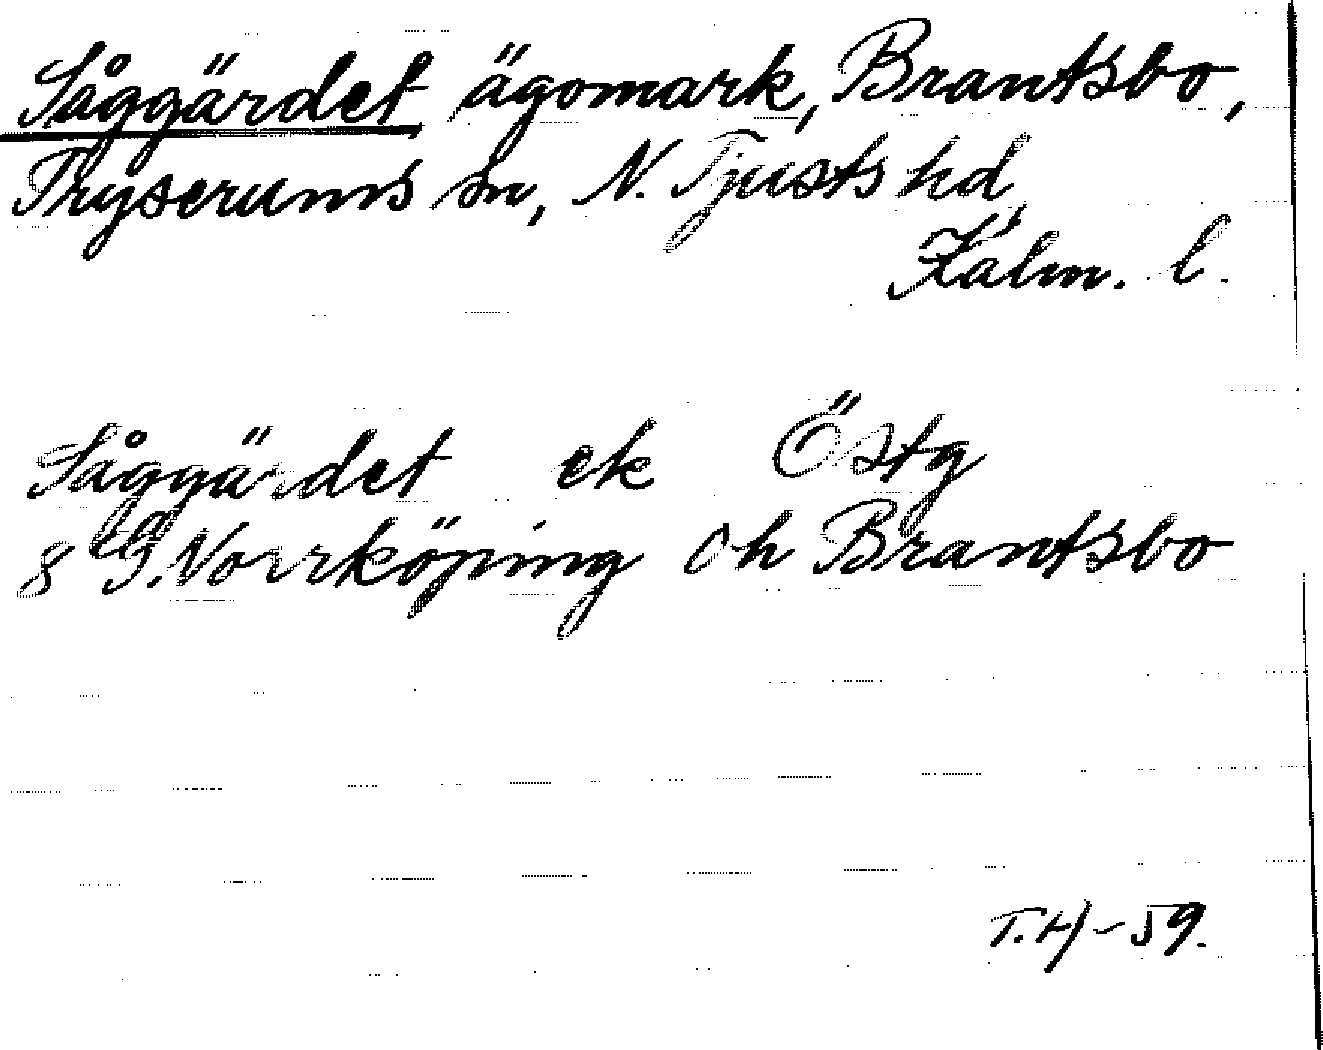 Såggärdet ägomark, Brantsbo,
Tryserums sn, N. Tjusts hd,
Kalm. l.
Såggärdet ek Östg
8 G. Norrköping Oh Brantsbo
T.H-59.